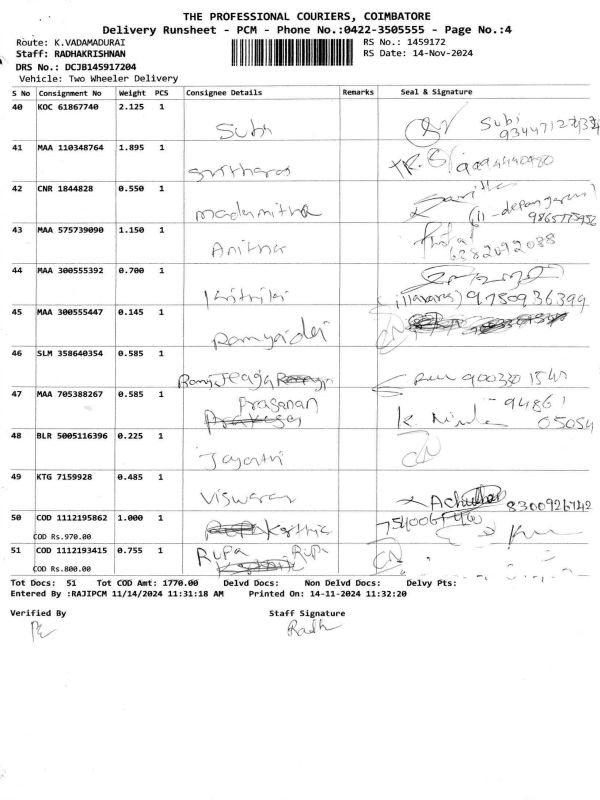 THE PROFESSIONAL COURIERS, COIMBATORE
Delivery Runsheet - PCM - Phone No.:0422-3505555 - Page No.:4
Route: K.VADAMADURAI RS No.: 1459172
Staff: RADHAKRISHNAN RS Date: 14-Nov-2024
DRS No.: DCJB145917204
Vehicle: Two Wheeler Delivery
S No Consignment No Weight PCS Consignee Details Remarks Seal & Signature
40 KOC 61867740 2.125 1
Subi
41 MAA 110348764 1.895 1
42 CNR 1844828 0.550 1
madumitha
43 MAA 575739090 1.150 1
Anitha 6382092038
44 MAA 300555392 0.700 1
9780936399
45 MAA 300555447 0.145 1
Ramyadei
46 SLM 358640354 0.585 1
47 MAA 705388267 0.585 1
Prasanan 94861
05054
48 BLR 5005116396 0.225 1
Jayanthi CN
49 KTG 7159928 0.485 1
8300926742
50 COD 1112195862 1.000 1
Karthic
COD Rs.970.00
51 COD 1112193415 0.755 1
Rupa Rupa CN
COD Rs.800.00
Tot Docs: 51 Tot COD Amt: 1770.00 Delvd Docs: Non Delvd Docs: Delvy Pts:
Entered By :RAJIPCM 11/14/2024 11:31:18 AM Printed On: 14-11-2024 11:32:20
Verified By Staff Signature
Radh